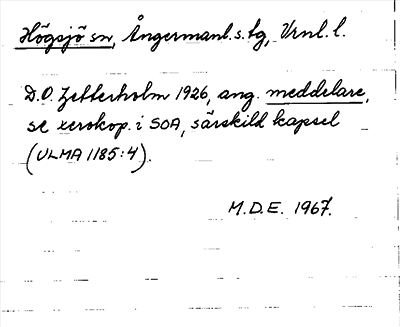 Högsjö sn, Ångermanl. s. tg, Vrnl. l.
D.O. Zetterholm 1926, ang. meddelare,
se xerokop. i SOA, särskild kapsel
(ULMA 1185:4).
M.D.E. 1967.